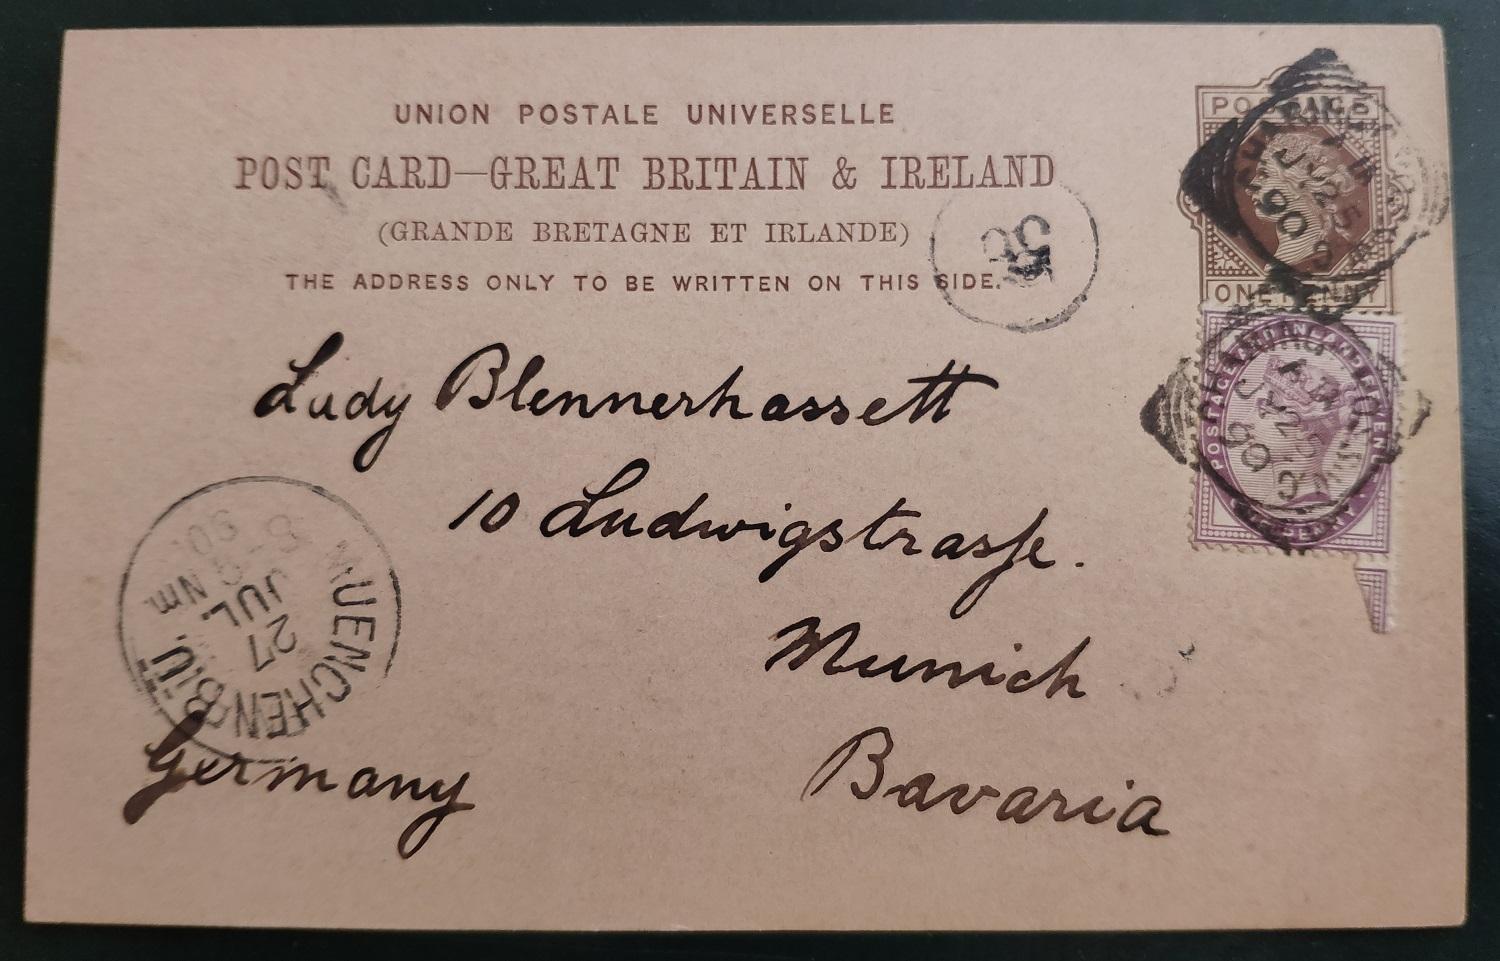 UNION POSTALE UNIVERSELLE
POST CARD—GREAT BRITAIN & IRELAND
(GRANDE BRETAGNE ET IRLANDE)
THE ADDRESS ONLY TO BE WRITTEN ON THIS SIDE.
POSTAGE
ONE PENNY
POSTAGE AND INLAND REVENUE
JU 25
90
Lady Blennerhassett
10 Ludwigstrasse.
Munich
Bavaria
Germany
MUENCHEN B.Ü.
27
JUL.
5-6 Nm.
90.